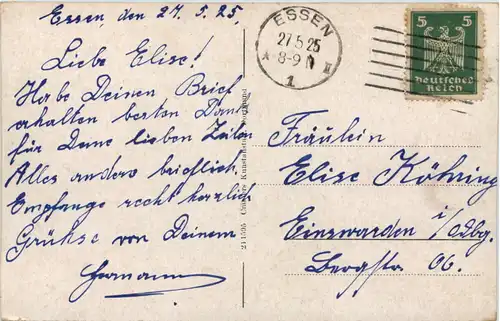 Essen, den 27.5.25,
Liebe Elise!
Habe Deinen Brief
erhalten besten Dank
für Deine lieben Zeilen
Alles andere brieflich.
Empfange recht herzlich
Grühse von Deinem
Hermann
ESSEN
27.5.25
8-9 N
1
5 5
Deutsches
Reich
Fräulein
Elise Köhring
Einswarden i/Oldbg.
Bergstr. 06.